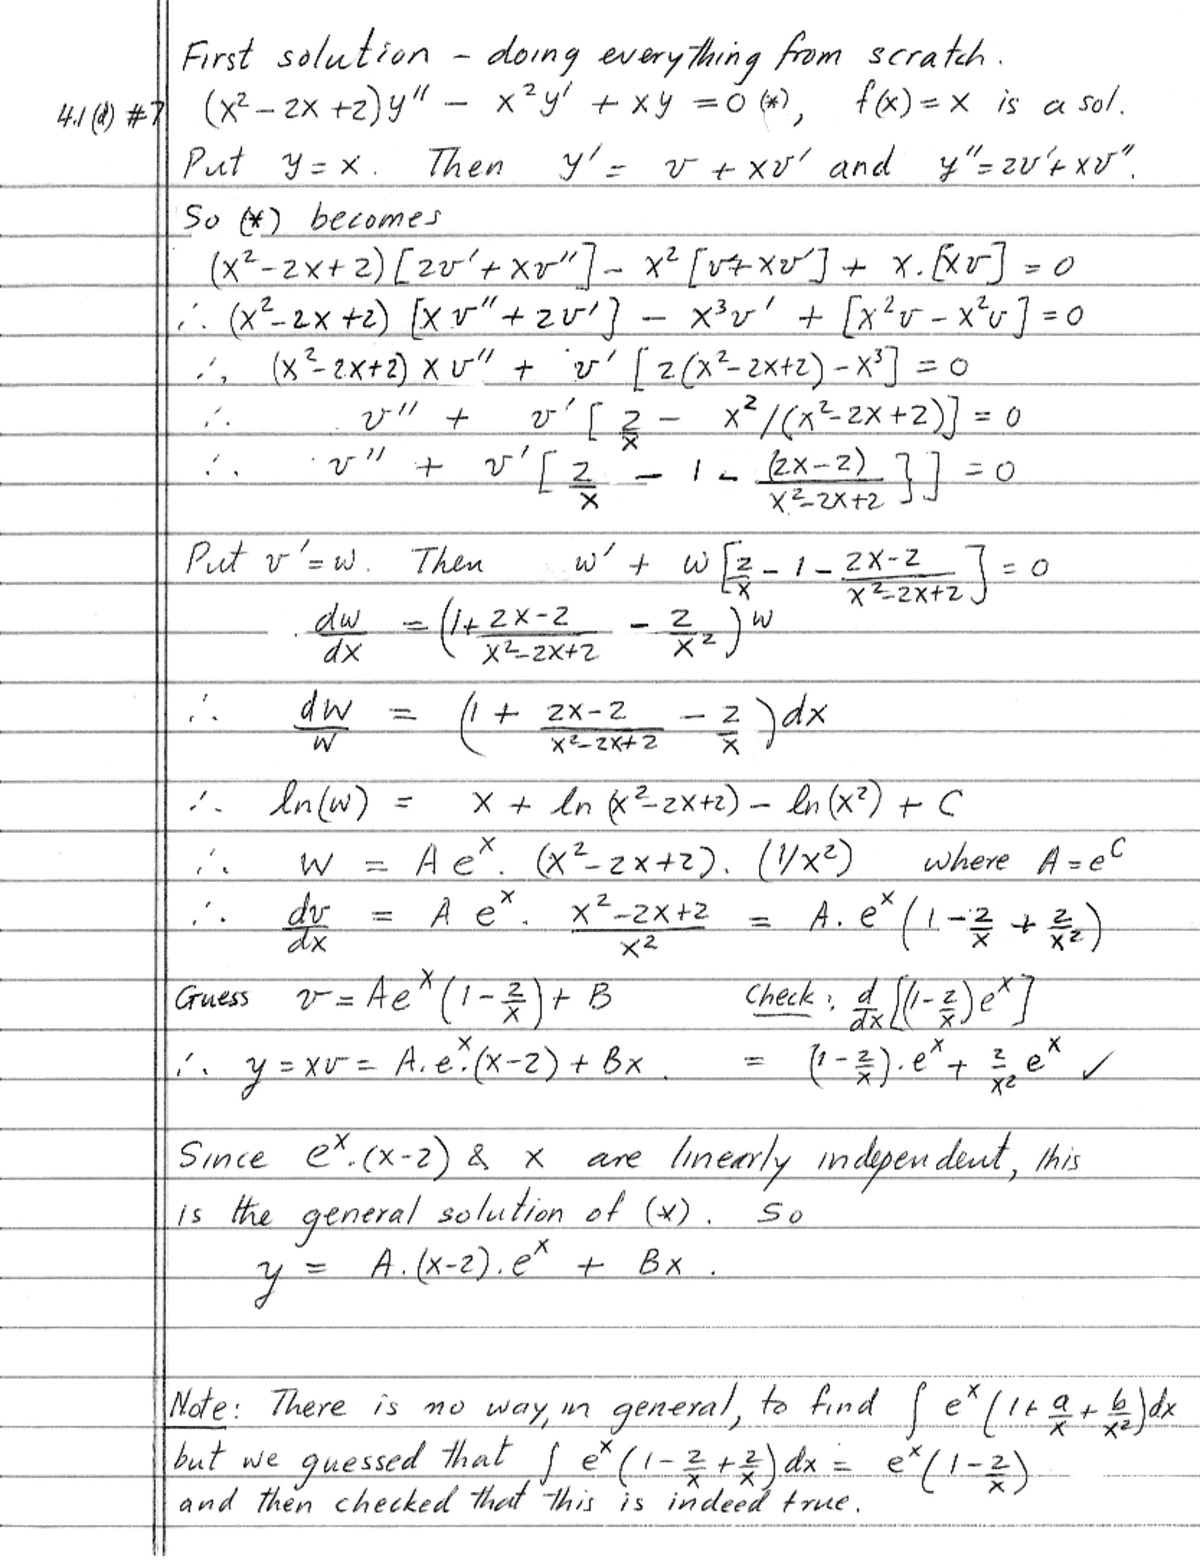 First solution – doing everything from scratch.
4.1(d) #7 (x² – 2x + 2)y" – x²y' + xy = 0 (*), f(x) = x is a sol.
Put y = x. Then y' = v + xv' and y" = 2v' + xv".
So (*) becomes
(x² – 2x + 2)[2v' + xv"] – x²[v + xv'] + x.[xv] = 0
∴ (x² – 2x + 2) [xv" + 2v'] – x³v' + [x²v – x²v] = 0
∴ (x² – 2x + 2) x v" + v' [2(x² – 2x + 2) – x³] = 0
∴ v" + v' [2/x – x²/(x² – 2x + 2)] = 0
∴ v" + v' [2/x – 1 – (2x–2)/x² – 2x + 2 }] = 0
Put v' = w. Then w' + w[2/x – 1 – 2x–2/x² – 2x + 2] = 0
dw/dx = (1 + 2x–2/x² – 2x + 2 – 2/x²) w
∴ dw/w = (1 + 2x–2/x² – 2x + 2 – 2/x) dx
∴ ln(w) = x + ln(x² – 2x + 2) – ln(x²) + C
∴ w = A eˣ. (x² – 2x + 2). (1/x²) where A = eᶜ
∴ dv/dx = A eˣ. x² – 2x + 2/x² = A. eˣ(1 – 2/x + 2/x²)
Guess v = Aeˣ(1 – 2/x) + B Check: d/dx[(1 – 2/x)eˣ]
∴ y = xv = A.eˣ.(x–2) + Bx. = (1 – 2/x).eˣ + 2/x² eˣ ✓
Since eˣ.(x–2) & x are linearly independent, this
is the general solution of (*). So
y = A.(x–2).eˣ + Bx.
Note: There is no way, in general, to find ∫ eˣ(1 + a/x + b/x²)dx
but we guessed that ∫ eˣ(1 – 2/x + 2/x)dx = eˣ(1 – 2/x)
and then checked that this is indeed true.